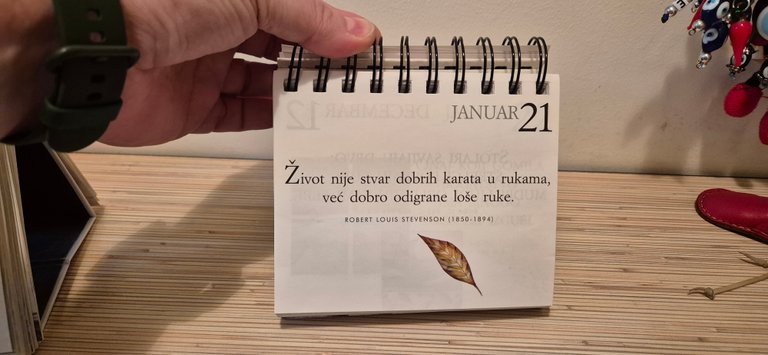 JANUAR 21
Život nije stvar dobrih karata u rukama,
već dobro odigrane loše ruke.
ROBERT LOUIS STEVENSON (1850-1894)